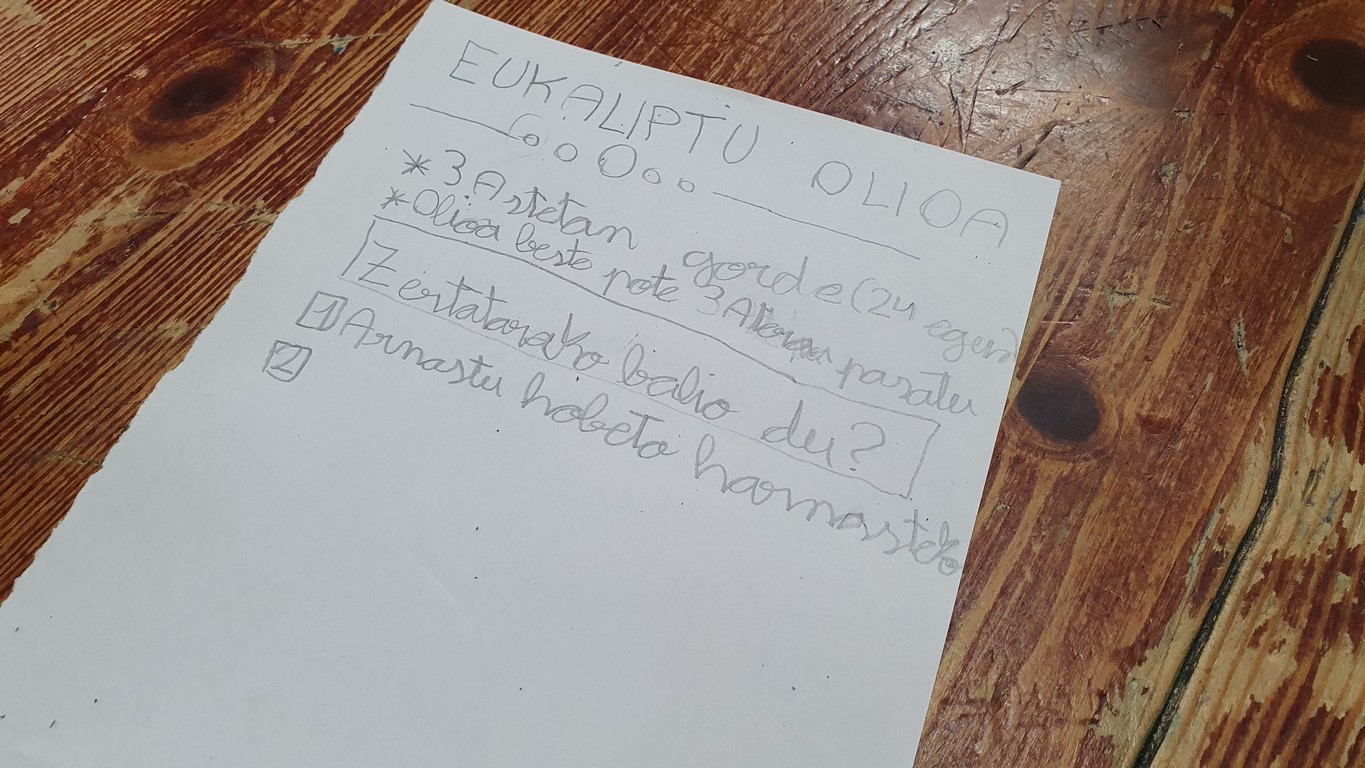 EUKALIPTU OLIOA
* 3 Astetan gorde (24 egun)
* Olioa beste pote 3 pasatu
Zertatarako balio du?
1 Arnastu hobeto harnasteko
2